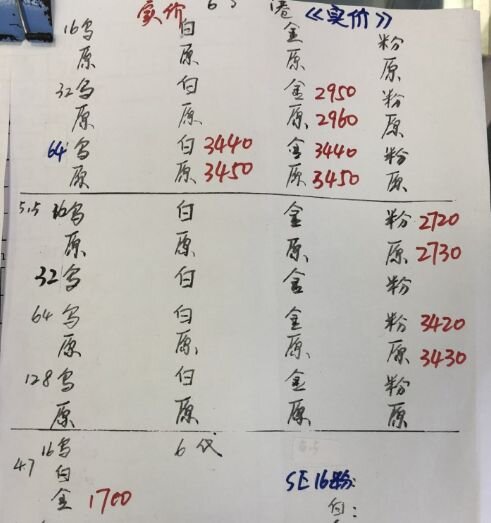 实价 6S 港 《实价》
16乌 白 金 粉
原 原 原 原
32乌 白 金2950 粉
原 原 原2960 原
64乌 白3440 金3440 粉
原 原3450 原3450 原
5.5 16乌 白 金 粉2720
原 原 原 原2730
32乌 白 金 粉
64乌 白 金 粉3420
原 原 原 原3430
128乌 白 金 粉
原 原 原 原
4.7 16乌 6代
白
金1700
SE16粉:
白: